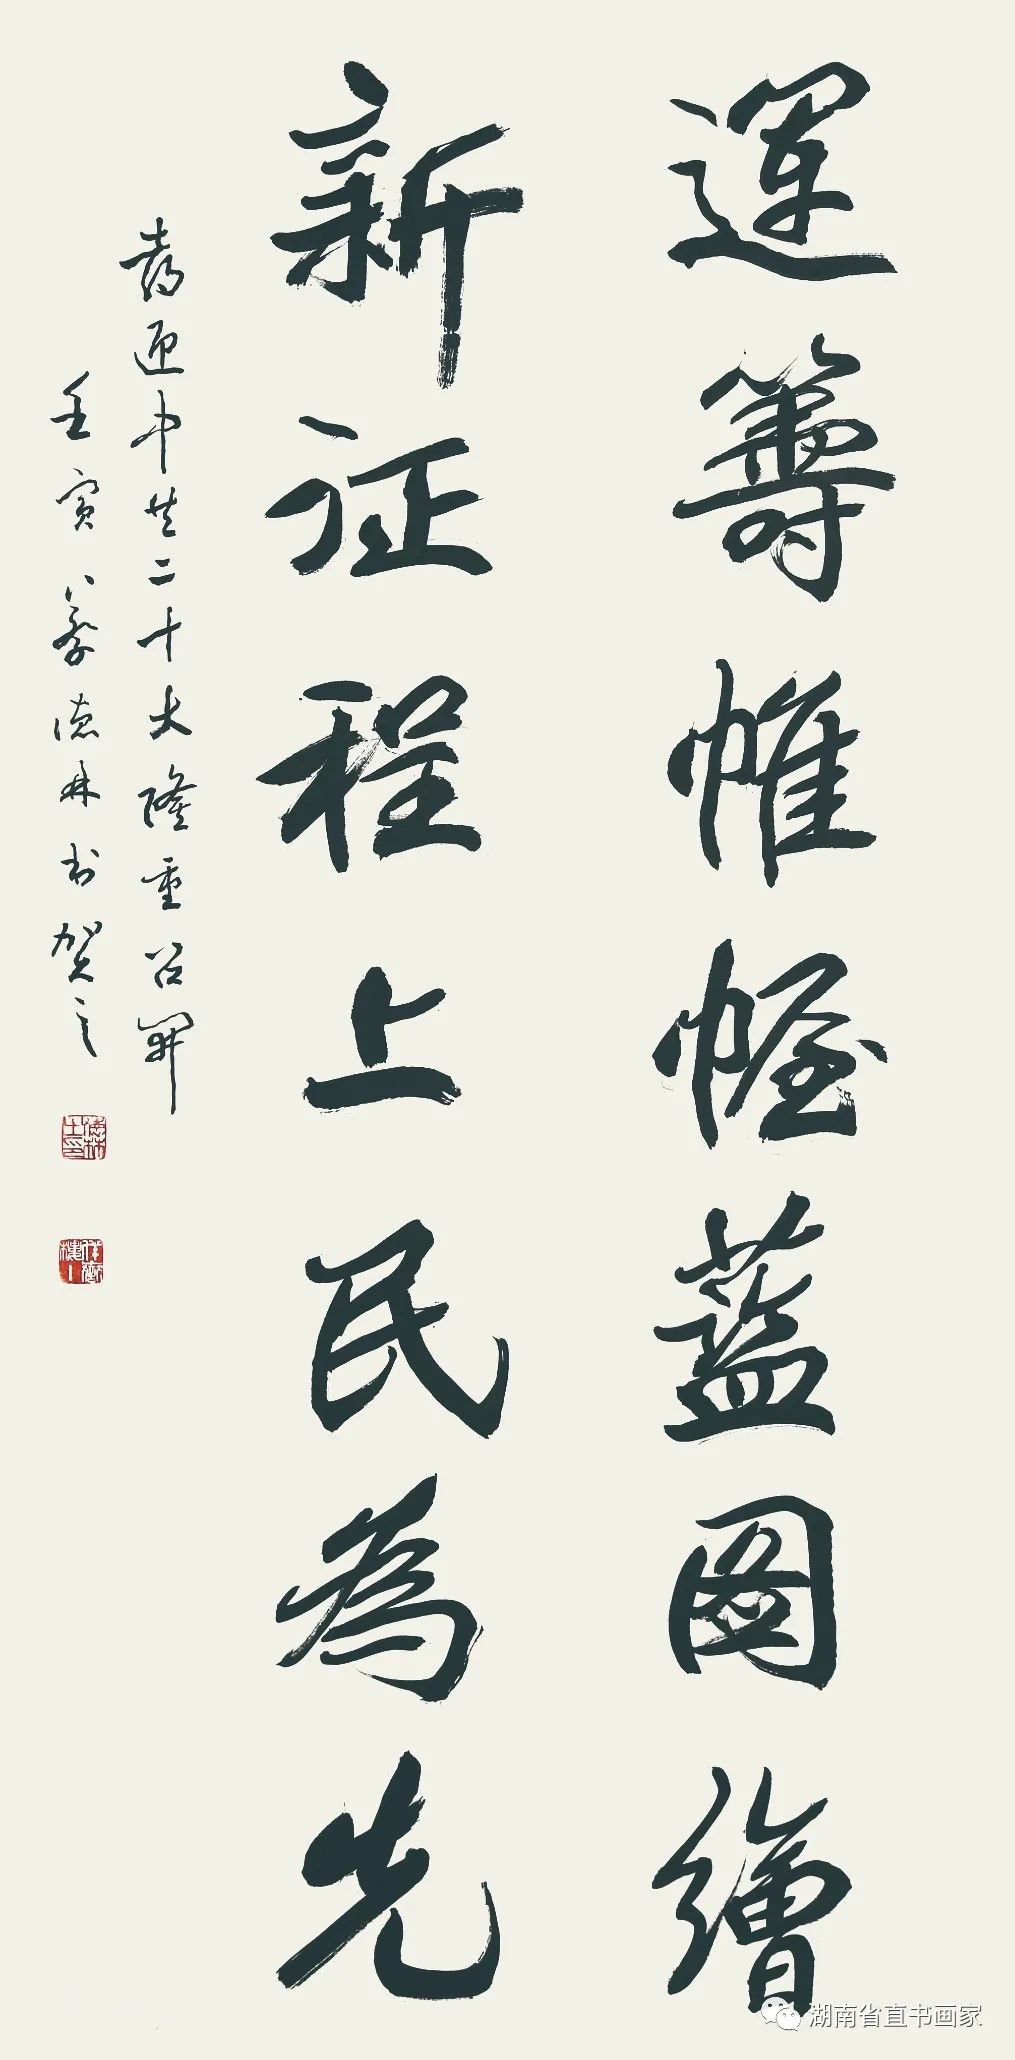 運籌帷幄藍圖繪
新证程上民為先
喜迎中共二十大隆重召開
壬寅八月蔡德林书贺之
湖南省直书画家